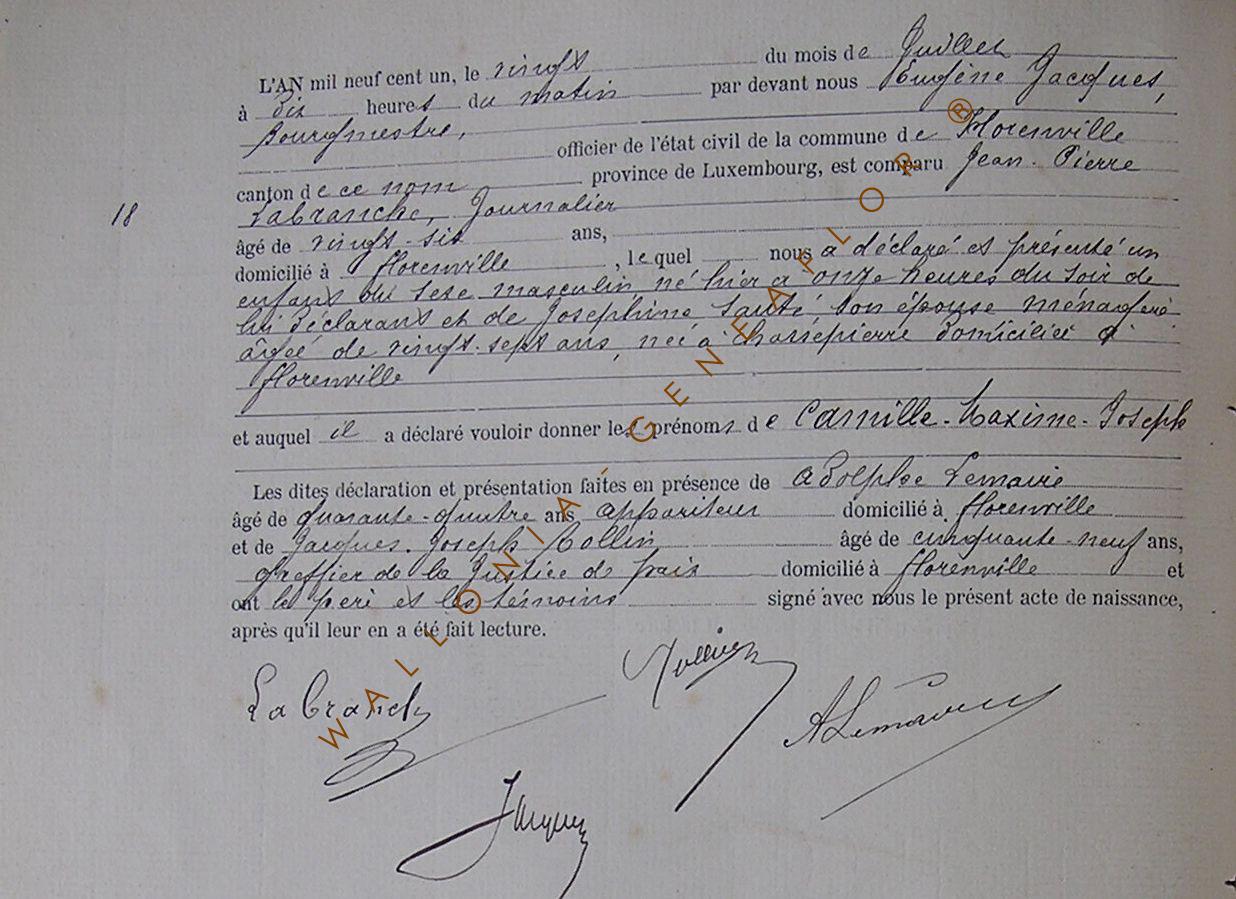 L'AN mil neuf cent un, le vingt du mois de Juillet
à dix heures du matin par devant nous Eugène Jacques,
Bourgmestre,
officier de l'état civil de la commune de Florenville
canton de ce nom province de Luxembourg, est comparu Jean-Pierre
Labranche, Journalier
18
âgé de vingt-six ans,
domicilié à florenville, lequel nous a déclaré et présenté un
enfant du sexe masculin né hier à onze heures du soir de
lui déclarant et de Joséphine Santé, son épouse ménagère
âgée de vingt-sept ans, née à Chassepierre domiciliée à
florenville
et auquel il a déclaré vouloir donner les prénoms de Camille-Maxime-Joseph
Les dites déclaration et présentation faites en présence de Adolphe Lemaire
âgé de quarante-quatre ans appariteur domicilié à florenville
et de Jacques-Joseph Collin âgé de cinquante-neuf ans,
greffier de la Justice de paix domicilié à florenville et
ont le père et les témoins signé avec nous le présent acte de naissance,
après qu'il leur en a été fait lecture.
Labranche
Collin
ALemaire
Jacques
WALLONIA GENEAFLOR ®